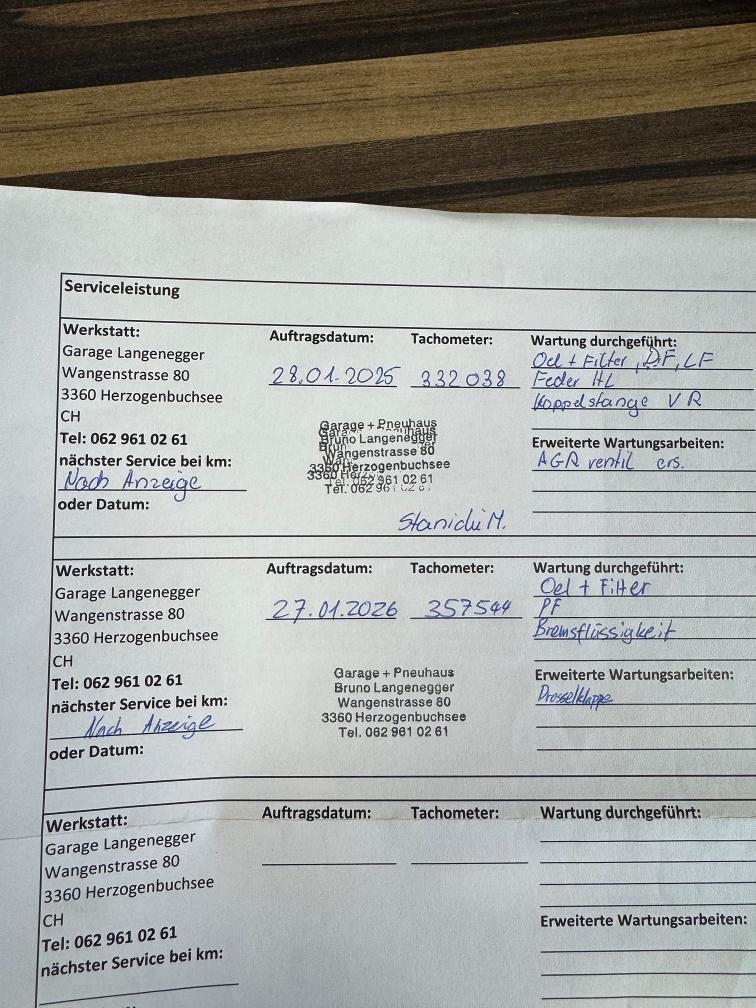 Serviceleistung
Werkstatt:
Garage Langenegger
Wangenstrasse 80
3360 Herzogenbuchsee
CH
Tel: 062 961 02 61
nächster Service bei km:
Nach Anzeige
oder Datum:
Auftragsdatum:
28.01.2025
Tachometer:
332038
Garage + Pneuhaus
Bruno Langenegger
Wangenstrasse 80
3360 Herzogenbuchsee
Tel. 062 961 02 61
Wartung durchgeführt:
Oel + Filter, LF
Feder HL
Koppelstange VR
Erweiterte Wartungsarbeiten:
AGR ventil ers.
Werkstatt:
Garage Langenegger
Wangenstrasse 80
3360 Herzogenbuchsee
CH
Tel: 062 961 02 61
nächster Service bei km:
Nach Anzeige
oder Datum:
Auftragsdatum:
27.01.2026
Tachometer:
357544
Garage + Pneuhaus
Bruno Langenegger
Wangenstrasse 80
3360 Herzogenbuchsee
Tel. 062 961 02 61
Wartung durchgeführt:
Oel + Filter
PF
Bremsflüssigkeit
Erweiterte Wartungsarbeiten:
Drosselklappe
Werkstatt:
Garage Langenegger
Wangenstrasse 80
3360 Herzogenbuchsee
CH
Tel: 062 961 02 61
nächster Service bei km:
Auftragsdatum:
Tachometer:
Wartung durchgeführt:
Erweiterte Wartungsarbeiten: